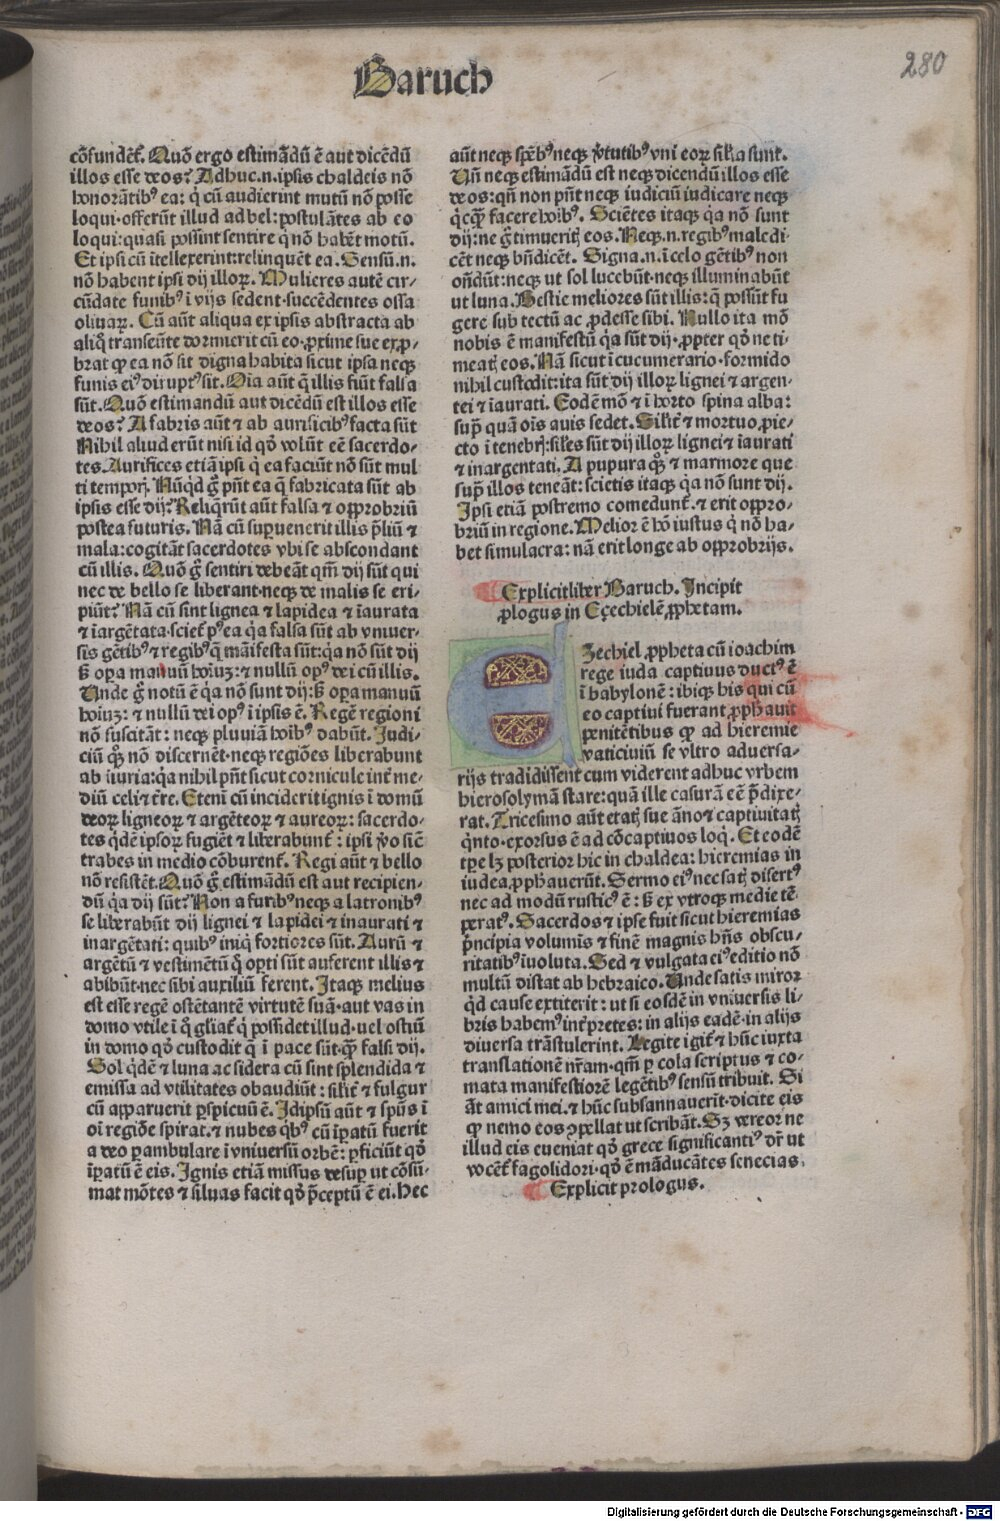 Baruch
280
cōfundēt̄. Quō ergo estimādū ē aut dicēdū
illos esse deos? Adhuc .n. ipsis chaldeis nō
honorātibꝰ ea: q̇ cū audierint mutū nō posse
loqui·offerūt illud ad bel: postulātes ab eo
loqui: quasi possint sentire q̇ nō habēt motū.
Et ipsi cū ītellexerint: relinquēt ea. Sensū .n.
nō habent ipsi dij illoꝝ. Mulieres autē cir-
cūdate funibꝰ ī vijs sedent·succēdentes ossa
oliuaꝝ. Cū aūt aliqua ex ipsis abstracta ab
aliq̄ transeūte dormierit cū eo·ꝓxime sue exꝓ-
brat ꝙ ea nō sit digna habita sicut ipsa neqꝫ
funis eiꝰ diruptꝰ sit. Oīa aūt q̄ illis fiūt falsa
sūt. Quō estimandū aut dicēdū est illos esse
deos? A fabris aūt ⁊ ab aurificibꝰ facta sūt
Nihil aliud erūt nisi id qd̄ volūt eē sacerdo-
tes. Aurifices etiā ipsi q̇ ea faciūt nō sūt mul
ti temporꝭ. Nūqd̄ g̊ pn̄t ea q̄ fabricata sūt ab
ipsis esse dij? Reliq̄rūt aūt falsa ⁊ opprobriū
postea futuris. Nā cū suꝑuenerit illis p̄liū ⁊
mala: cogitāt sacerdotes vbi se abscondant
cū illis. Quō g̊ sentiri debeāt qm̄ dij sūt qui
nec de bello se liberant·neqꝫ de malis se eri-
piūt? Nā cū sint lignea ⁊ lapidea ⁊ īaurata
⁊ īargētata·sciet̄ pꝰea q̇a falsa sūt ab vniuer-
sis gētibꝰ ⁊ regibꝰ q̄ māifesta sūt: q̇a nō sūt dij
sꝫ oꝑa manuū hoīuꝫ: ⁊ nullū opꝰ dei cū illis.
Unde g̊ notū ē q̇a nō sunt dij: sꝫ oꝑa manuū
hoīuꝫ: ⁊ nullū dei opꝰ ī ipsis ē. Regē regioni
nō suscitāt: neqꝫ pluuiā hoībꝰ dabūt. Judi-
ciū qꝫ nō discernēt·neqꝫ regiōes liberabunt
ab iīuria: q̇a nihil pn̄t sicut cornicule int̄ me-
diū celi ⁊ t̄re. Etenī cū inciderit ignis ī domū
deoꝝ ligneoꝝ ⁊ argēteoꝝ ⁊ aureoꝝ: sacerdo-
tes q̇dē ipsoꝝ fugiēt ⁊ liberabunt̄: ipsi v̊o sic̄
trabes in medio cōburent̄. Regi aūt ⁊ bello
nō resistēt. Quō g̊ estimādū est aut recipien-
dū q̇a dij sūt? Non a furibꝰ neqꝫ a latronibꝰ
se liberabūt dij lignei ⁊ lapidei ⁊ inaurati ⁊
inargētati: quibꝰ iniq̇ fortiores sūt. Aurū ⁊
argētū ⁊ vestimētū q̊ oꝑti sūt auferent illis ⁊
abibūt·nec sibi auxiliū ferent. Itaqꝫ melius
est esse regē ostētantē virtutē suā·aut vas in
domo vtile ī q̊ gl̄iat̄ q̇ possidet illud·vel ostiū
in domo qd̄ custodit q̄ ī pace sūt·ꝙ̄ falsi dij.
Sol q̇dē ⁊ luna ac sidera cū sint splendida ⁊
emissa ad vtilitates obaudiūt: silit̄ ⁊ fulgur
cū apparuerit ꝑspicuū ē. Idipsū aūt ⁊ spūs ī
oī regiōe spirat·⁊ nubes qbꝰ cū īꝑatū fuerit
a deo ꝑambulare ī vniuersū orbē: ꝑficiūt qd̄
īꝑatū ē eis. Ignis etiā missus desuꝑ ut cōsū-
mat mōtes ⁊ siluas facit qd̄ p̄ceptū ē ei. Hec
aūt neqꝫ spēbꝰ neqꝫ v̇tutibꝰ vni eoꝝ sil̄ia sunt.
Un̄ neqꝫ estimādū est neqꝫ dicendū illos esse
deos: qn̄ non pn̄t neqꝫ iudiciū iudicare neqꝫ
q̇cꝙ̄ facere hoībꝰ. Sciētes itaqꝫ q̇a nō sunt
dij: ne g̊ timueritꝭ eos. Neqꝫ .n. regibꝰ maledi-
cēt neqꝫ bn̄dicēt. Signa .n. ī celo gētibꝰ non
on̄dūt: neqꝫ ut sol lucebūt·neqꝫ illuminabūt
ut luna. Bestie meliores sūt illis: q̄ possūt fu
gere sub tectū ac ꝓdesse sibi. Nullo ita mō
nobis ē manifestū q̇a sūt dij·ꝓpter qd̄ ne ti-
meatꝭ eos. Nā sicut ī cucumerario·formido
nihil custodit: ita sūt dij illoꝝ lignei ⁊ argen-
tei ⁊ īaurati. Eodē mō ⁊ ī horto spina alba:
supͣ quā oīs auis sedet. Silit̄ ⁊ mortuo ꝓie-
cto ī tenebrꝭ: siles sūt dij illoꝝ lignei ⁊ īaurati
⁊ inargentati. A pupura qꝫ ⁊ marmore que
supͣ illos teneāt: scietis itaqꝫ q̇a nō sunt dij.
Ipsi etiā postremo comedunt̄·⁊ erit oppro-
briū in regione. Melior ē hō iustus q̇ nō ha-
bet simulacra: nā erit longe ab opprobrijs.
Explicit liber Baruch. Incipit
ꝓlogus in Eçechielē ꝓphetam.
Ezechiel ꝓpheta cū ioachim
rege iuda captiuus ductꝰ ē
ī babylonē: ibiqꝫ his qui cū
eo captiui fuerant ꝓph̄auit
penitētibus ꝙ ad hieremie
vaticiniū se vltro aduersa-
rijs tradidissent cum viderent adhuc vrbem
hierosolymā stare: quā ille casurā eē p̄dixe-
rat. Tricesimo aūt etatꝭ sue āno ⁊ captiuitatꝭ
q̇nto·exorsus ē ad cōcaptiuos loq̇. Et eodē
tꝑe lꝫ posterior hic in chaldea: hieremias in
iudea ꝓph̄auerūt. Sermo eiꝰ nec satꝭ disertꝰ
nec ad modū rusticꝰ ē: sꝫ ex vtroqꝫ medie tē-
ꝑatꝰ. Sacerdos ⁊ ipse fuit sicut hieremias
p̄ncipia volumīs ⁊ finē magnis hn̄s obscu-
ritatibꝰ īuoluta. Sed ⁊ vulgata eiꝰ editio nō
multū distat ab hebraico. Unde satis miror
qd̄ cause extiterit: ut si eosdē in vniuersis li-
bris habemꝰ int̄pretes: in alijs eadē·in alijs
diuersa trāstulerint. Legite igit̄ ⁊ hūc iuxta
translationē nr̄am·qm̄ ꝑ cola scriptus ⁊ co-
mata manifestiorē legētibꝰ sensū tribuit. Si
āt amici mei·⁊ hūc subsannauerīt·dicite eis
ꝙ nemo eos ꝯpellat ut scribāt. Sꝫ vereor ne
illud eis eueniat qd̄ grece significantiꝰ dr̄ ut
vocēt̄ fagolidori·qd̄ ē māducātes senecias.
Explicit prologus.
Digitalisierung gefördert durch die Deutsche Forschungsgemeinschaft - DFG